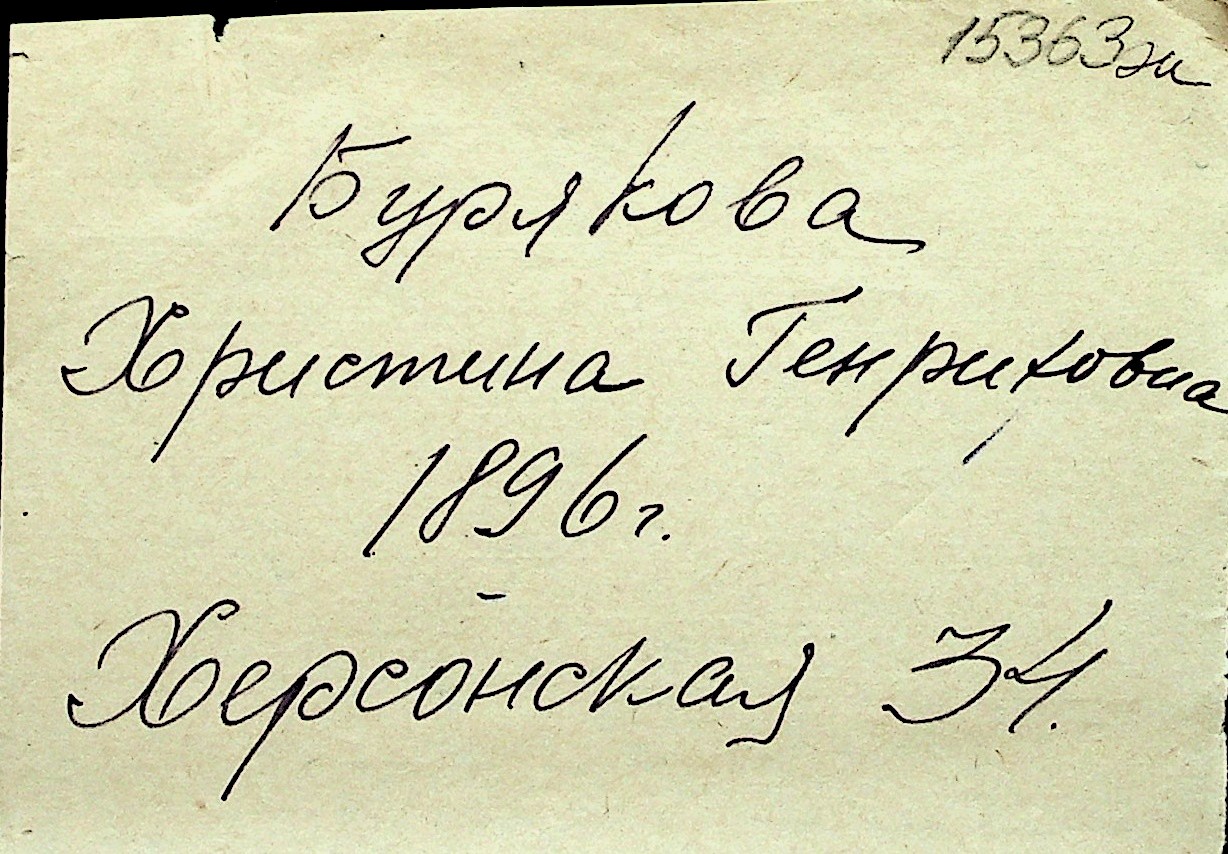 15363эи
Бурякова
Христина Генриховна
1896г.
Херсонская 34.